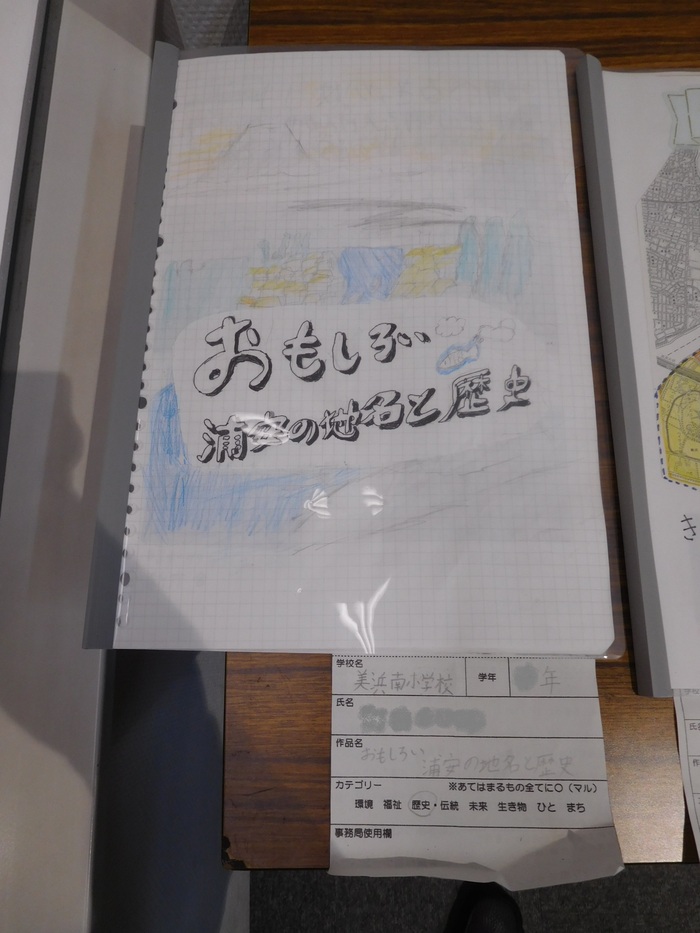 おもしろい
浦安の地名と歴史
き
学校名
美浜南小学校
学年
年
氏名
作品名
おもしろい 浦安の地名と歴史
カテゴリー ※あてはまるもの全てに〇（マル）
環境 福祉 歴史・伝統 未来 生き物 ひと まち
事務局使用欄